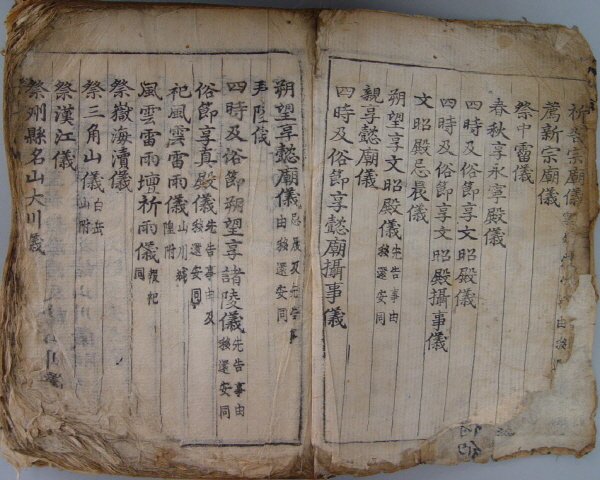 祈告宗廟儀
薦新宗廟儀
祭中霤儀
春秋享永寧殿儀
四時及俗節享文昭殿儀
四時及俗節享文昭殿攝事儀
文昭殿忌晨儀
朔望享文昭殿儀 先告事由移還安同
親享懿廟儀
四時及俗節享懿廟攝事儀
朔望享懿廟儀 忌晨及先告事由移還安同
拜陵儀
四時及俗節朔望享諸陵儀 先告事由移還安同
俗節享真殿儀 先告事由及移還安同
祀風雲雷雨儀 山川城隍附
風雲雷雨壇祈雨儀 報祀同
祭嶽海瀆儀
祭三角山儀 白岳山附
祭漢江儀
祭州縣名山大川儀